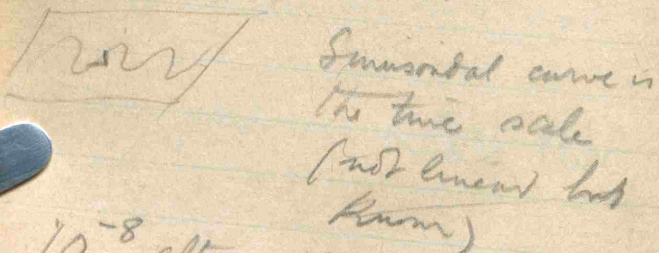 Sinusoidal curve is
the time scale
(not linear but
known)
10⁻⁸